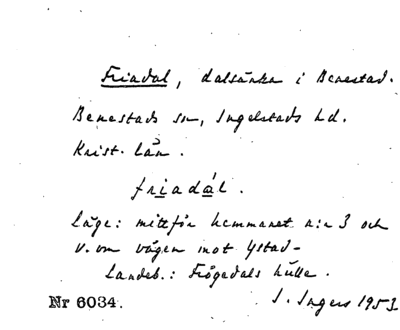 Friadal, dalsänka i Benestad.
Benestads sn, Ingelstads hd.
Krist. län.
friadál.
Läge: mittför hemmanet n:r 3 och
v. om vägen mot Ystad-
Landeb.: Frögedals hülle.
I. Ingers 1953
Nr 6034.